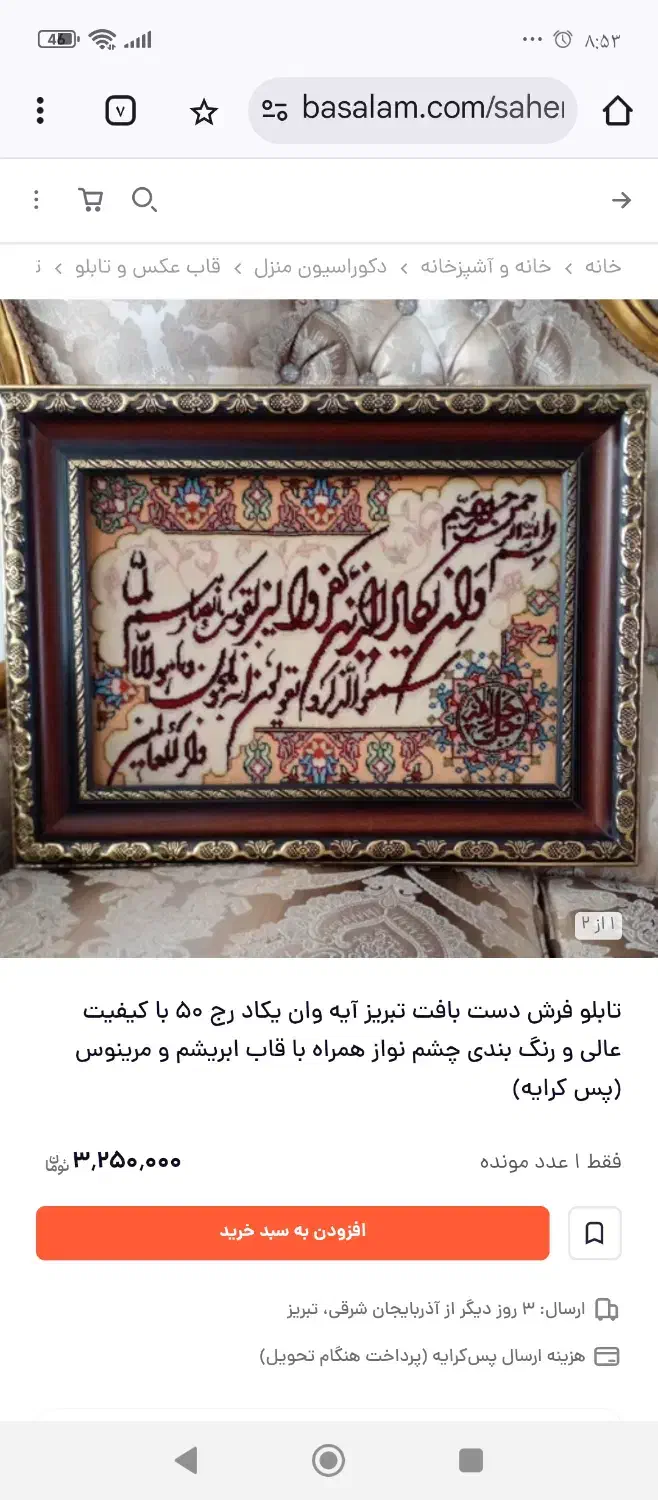 46
۸:۵۳
۷
basalam.com/saher
خانه › خانه و آشپزخانه › دکوراسیون منزل › قاب عکس و تابلو ›
بسم الله الرحمن الرحیم
وان یکاد الذین کفروا لیزلقونک بابصارهم لما
سمعوا الذکر و یقولون انه لمجنون و ما هو الا
ذکر للعالمین
۱ از ۲
تابلو فرش دست بافت تبریز آیه وان یکاد رج ۵۰ با کیفیت
عالی و رنگ بندی چشم نواز همراه با قاب ابریشم و مرینوس
(پس کرایه)
فقط ۱ عدد مونده
۳,۲۵۰,۰۰۰ تومان
افزودن به سبد خرید
ارسال: ۳ روز دیگر از آذربایجان شرقی، تبریز
هزینه ارسال پس‌کرایه (پرداخت هنگام تحویل)